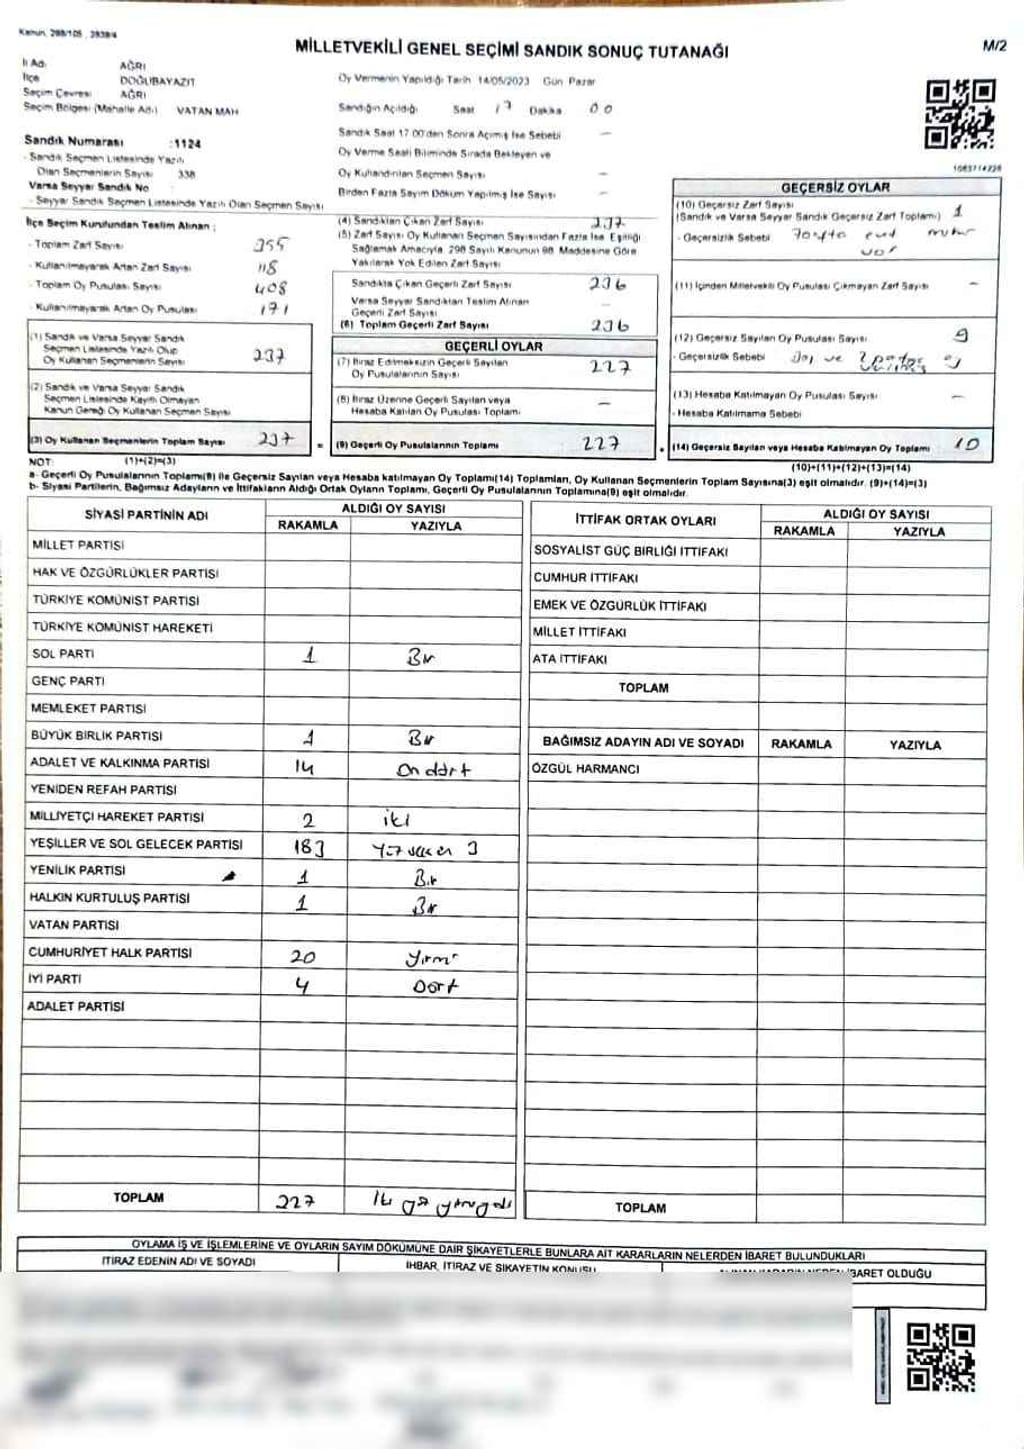 Kanun, 298/105 , 2839/4
MİLLETVEKİLİ GENEL SEÇİMİ SANDIK SONUÇ TUTANAĞI
M/2
İl Adı AĞRI
İlçe DOĞUBAYAZIT
Seçim Çevresi AĞRI
Seçim Bölgesi (Mahalle Adı) VATAN MAH
Sandık Numarası :1124
- Sandık Seçmen Listesinde Yazılı
Olan Seçmenlerin Sayısı 338
Varsa Seyyar Sandık No
- Seyyar Sandık Seçmen Listesinde Yazılı Olan Seçmen Sayısı
Oy Vermenin Yapıldığı Tarih 14/05/2023 Gün Pazar
Sandığın Açıldığı Saat 17 Dakika 00
Sandık Saat 17.00'den Sonra Açımış İse Sebebi —
Oy Verme Saati Bitiminde Sırada Bekleyen ve
Oy Kullandırılan Seçmen Sayısı —
Birden Fazla Sayım Döküm Yapılmış İse Sayısı —
İlçe Seçim Kurulundan Teslim Alınan ;
- Toplam Zarf Sayısı 355
- Kullanılmayarak Artan Zarf Sayısı 118
- Toplam Oy Pusulası Sayısı 408
- Kullanılmayarak Artan Oy Pusulası 171
(1) Sandık ve Varsa Seyyar Sandık
Seçmen Listesinde Yazılı Olup
Oy Kullanan Seçmenlerin Sayısı 237
(2) Sandık ve Varsa Seyyar Sandık
Seçmen Listesinde Kayıtlı Olmayan
Kanun Gereği Oy Kullanan Seçmen Sayısı
(3) Oy Kullanan Seçmenlerin Toplam Sayısı 237
(4) Sandıktan Çıkan Zarf Sayısı 237
(5) Zarf Sayısı Oy Kullanan Seçmen Sayısından Fazla İse Eşitliği
Sağlamak Amacıyla 298 Sayılı Kanunun 98. Maddesine Göre
Yakılarak Yok Edilen Zarf Sayısı
Sandıkta Çıkan Geçerli Zarf Sayısı 236
Varsa Seyyar Sandıktan Teslim Alınan
Geçerli Zarf Sayısı —
(6) Toplam Geçerli Zarf Sayısı 236
GEÇERLİ OYLAR
(7) İtiraz Edilmeksizin Geçerli Sayılan
Oy Pusulalarının Sayısı 227
(8) İtiraz Üzerine Geçerli Sayılan veya
Hesaba Katılan Oy Pusulası Toplamı —
= (9) Geçerli Oy Pusulalarının Toplamı 227
1083714226
GEÇERSİZ OYLAR
(10) Geçersiz Zarf Sayısı
(Sandık ve Varsa Seyyar Sandık Geçersiz Zarf Toplamı) 1
- Geçersizlik Sebebi
(11) İçinden Milletvekili Oy Pusulası Çıkmayan Zarf Sayısı —
(12) Geçersiz Sayılan Oy Pusulası Sayısı 9
- Geçersizlik Sebebi
(13) Hesaba Katılmayan Oy Pusulası Sayısı —
- Hesaba Katılmama Sebebi
(14) Geçersiz Sayılan veya Hesaba Katılmayan Oy Toplamı 10
NOT: (1)+(2)=(3)
(10)+(11)+(12)+(13)=(14)
a- Geçerli Oy Pusulalarının Toplamı(9) ile Geçersiz Sayılan veya Hesaba katılmayan Oy Toplamı(14) Toplamları, Oy Kullanan Seçmenlerin Toplam Sayısına(3) eşit olmalıdır. (9)+(14)=(3)
b- Siyasi Partilerin, Bağımsız Adayların ve İttifakların Aldığı Ortak Oyların Toplamı, Geçerli Oy Pusulalarının Toplamına(9) eşit olmalıdır.
SİYASİ PARTİNİN ADI ALDIĞI OY SAYISI
RAKAMLA YAZIYLA
MİLLET PARTİSİ
HAK VE ÖZGÜRLÜKLER PARTİSİ
TÜRKİYE KOMÜNİST PARTİSİ
TÜRKİYE KOMÜNİST HAREKETİ
SOL PARTİ 1 Bir
GENÇ PARTİ
MEMLEKET PARTİSİ
BÜYÜK BİRLİK PARTİSİ 1 Bir
ADALET VE KALKINMA PARTİSİ 14 On dört
YENİDEN REFAH PARTİSİ
MİLLİYETÇİ HAREKET PARTİSİ 2 iki
YEŞİLLER VE SOL GELECEK PARTİSİ 183
YENİLİK PARTİSİ 1 Bir
HALKIN KURTULUŞ PARTİSİ 1 Bir
VATAN PARTİSİ
CUMHURİYET HALK PARTİSİ 20 yirmi
İYİ PARTİ 4 Dört
ADALET PARTİSİ
TOPLAM 227
İTTİFAK ORTAK OYLARI ALDIĞI OY SAYISI
RAKAMLA YAZIYLA
SOSYALİST GÜÇ BİRLİĞİ İTTİFAKI
CUMHUR İTTİFAKI
EMEK VE ÖZGÜRLÜK İTTİFAKI
MİLLET İTTİFAKI
ATA İTTİFAKI
TOPLAM
BAĞIMSIZ ADAYIN ADI VE SOYADI RAKAMLA YAZIYLA
ÖZGÜL HARMANCI
TOPLAM
OYLAMA İŞ VE İŞLEMLERİNE VE OYLARIN SAYIM DÖKÜMÜNE DAİR ŞİKAYETLERLE BUNLARA AİT KARARLARIN NELERDEN İBARET BULUNDUKLARI
İTİRAZ EDENİN ADI VE SOYADI İHBAR, İTİRAZ VE ŞİKAYETİN KONUSU İBARET OLDUĞU